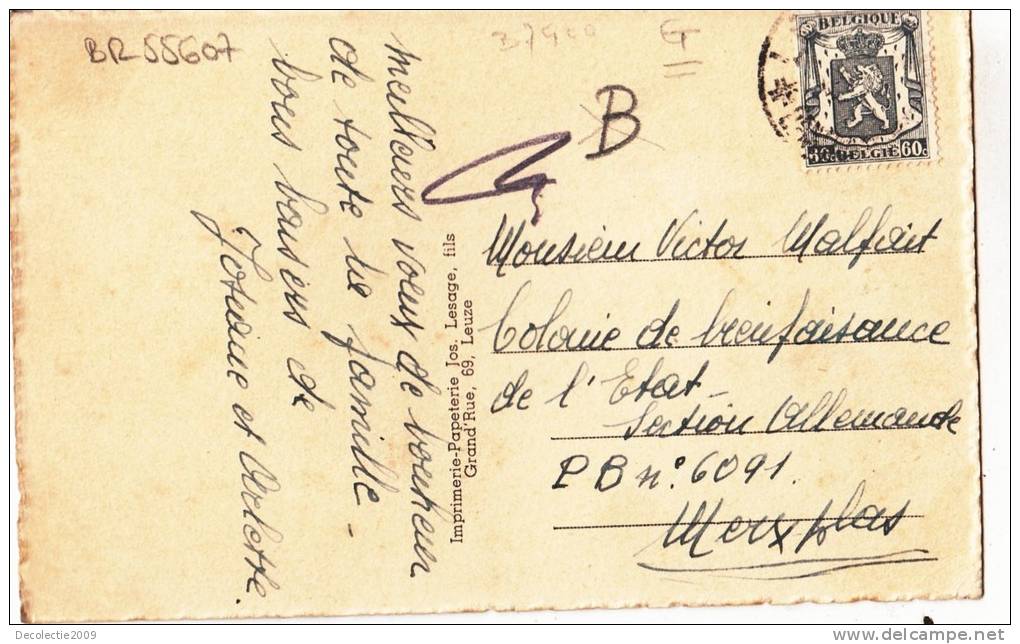 BR 55607
B7900
G
B
BELGIQUE
BELGIË 60c
meilleurs voeux de bonheur
de toute la famille -
bons baisers de
et Arlette.
Imprimerie-Papeterie Jos. Lesage, fils
Grand'Rue, 69, Leuze
Monsieur Victor Malfait
Colonie de bienfaisance
de l'Etat -
Section Allemande
P B n° 6091.
Merxplas
Decolectie2009
delcampe.net